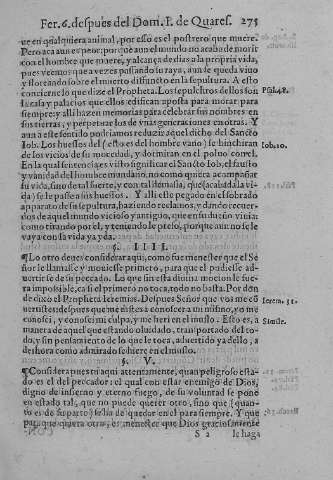 Fer. 6. despues del Dom. I. de Quares. 275
ue en qualquiera animal, por esso es el postrero que muere.
Pero aca aun es peor: por que aun el mundo no acaba de morir
con el hombre que muere, y alcança de dias a la propria vida,
pues vemos que a vezes passando su raya, aun se queda viuo
y floreando sobre el muerto difunto en la sepultura. A esto
concierne lo que dize el Propheta. Los sepulchros dellos son
su casa y palacios que ellos edifican aposta para morar para
siempre: y alli hazen memorias para celebrar sus nombres en
sus tierras, y perpetuarlos de vnas generaciones en otras. Y
aun a este sentido podriamos reduzir aquel dicho del Sancto
Iob. Los huessos del (esto es del hombre vano) se hinchiran
de los vicios de su mocedad, y dormiran en el poluo con el.
En la qual sentencia
y vanidad del hombre mundano, no como quiera acompañar
su vida, sino de tal suerte, y con tal demasia, que (acabada la vi
da) se le passe a sus huessos. Y alli este pegado en el sobrado
apparato de su sepultura, haziendo reclamos, y dando recuer-
dos de aquel mundo vicioso y antiguo, que en su duro viuia:
como tirando por el, y teniendo le
vaya con la vida ya yda.
§. IIII.
¶ Lo otro deues considerar aqui, como fue menester que el Se
ñor le llamasse y mouiesse primero, para que el pudiesse ad-
uertirse de su peccado. Lo que sin esta diuina mocion le fue-
ra impossible, ca si el primero no toca, todo no basta. Por don
de dixo el Propheta Ieremias. Despues Señor que vos me co
nuertistes: despues que me distes a conoscer a mi mismo, yo me
conosci, y conosci mi culpa, y me heri en el muslo. Esto es, a
manera de aquel que estando oluidado, transportado del to-
do, y sin pensamiento de lo que le toca, aduertido ya dello, a
deshora como admirado se hiere en el muslo.
§. V.
¶ Considera pues tu aqui attentamente, quan peligroso esta-
do es el del peccador: el qual con estar enemigo de Dios,
digno de infierno y eterno fuego, de su voluntad se pone
en estado tal, que no puede querer otro, sino que (quan-
to es de su parte) se ha de quedar en el para siempre. Y que
para que quiera otro, es menester que Dios graciosamente
S 2 le haga
Psal. 48.
Iob. 20.
Ierem. 31.
Simile.